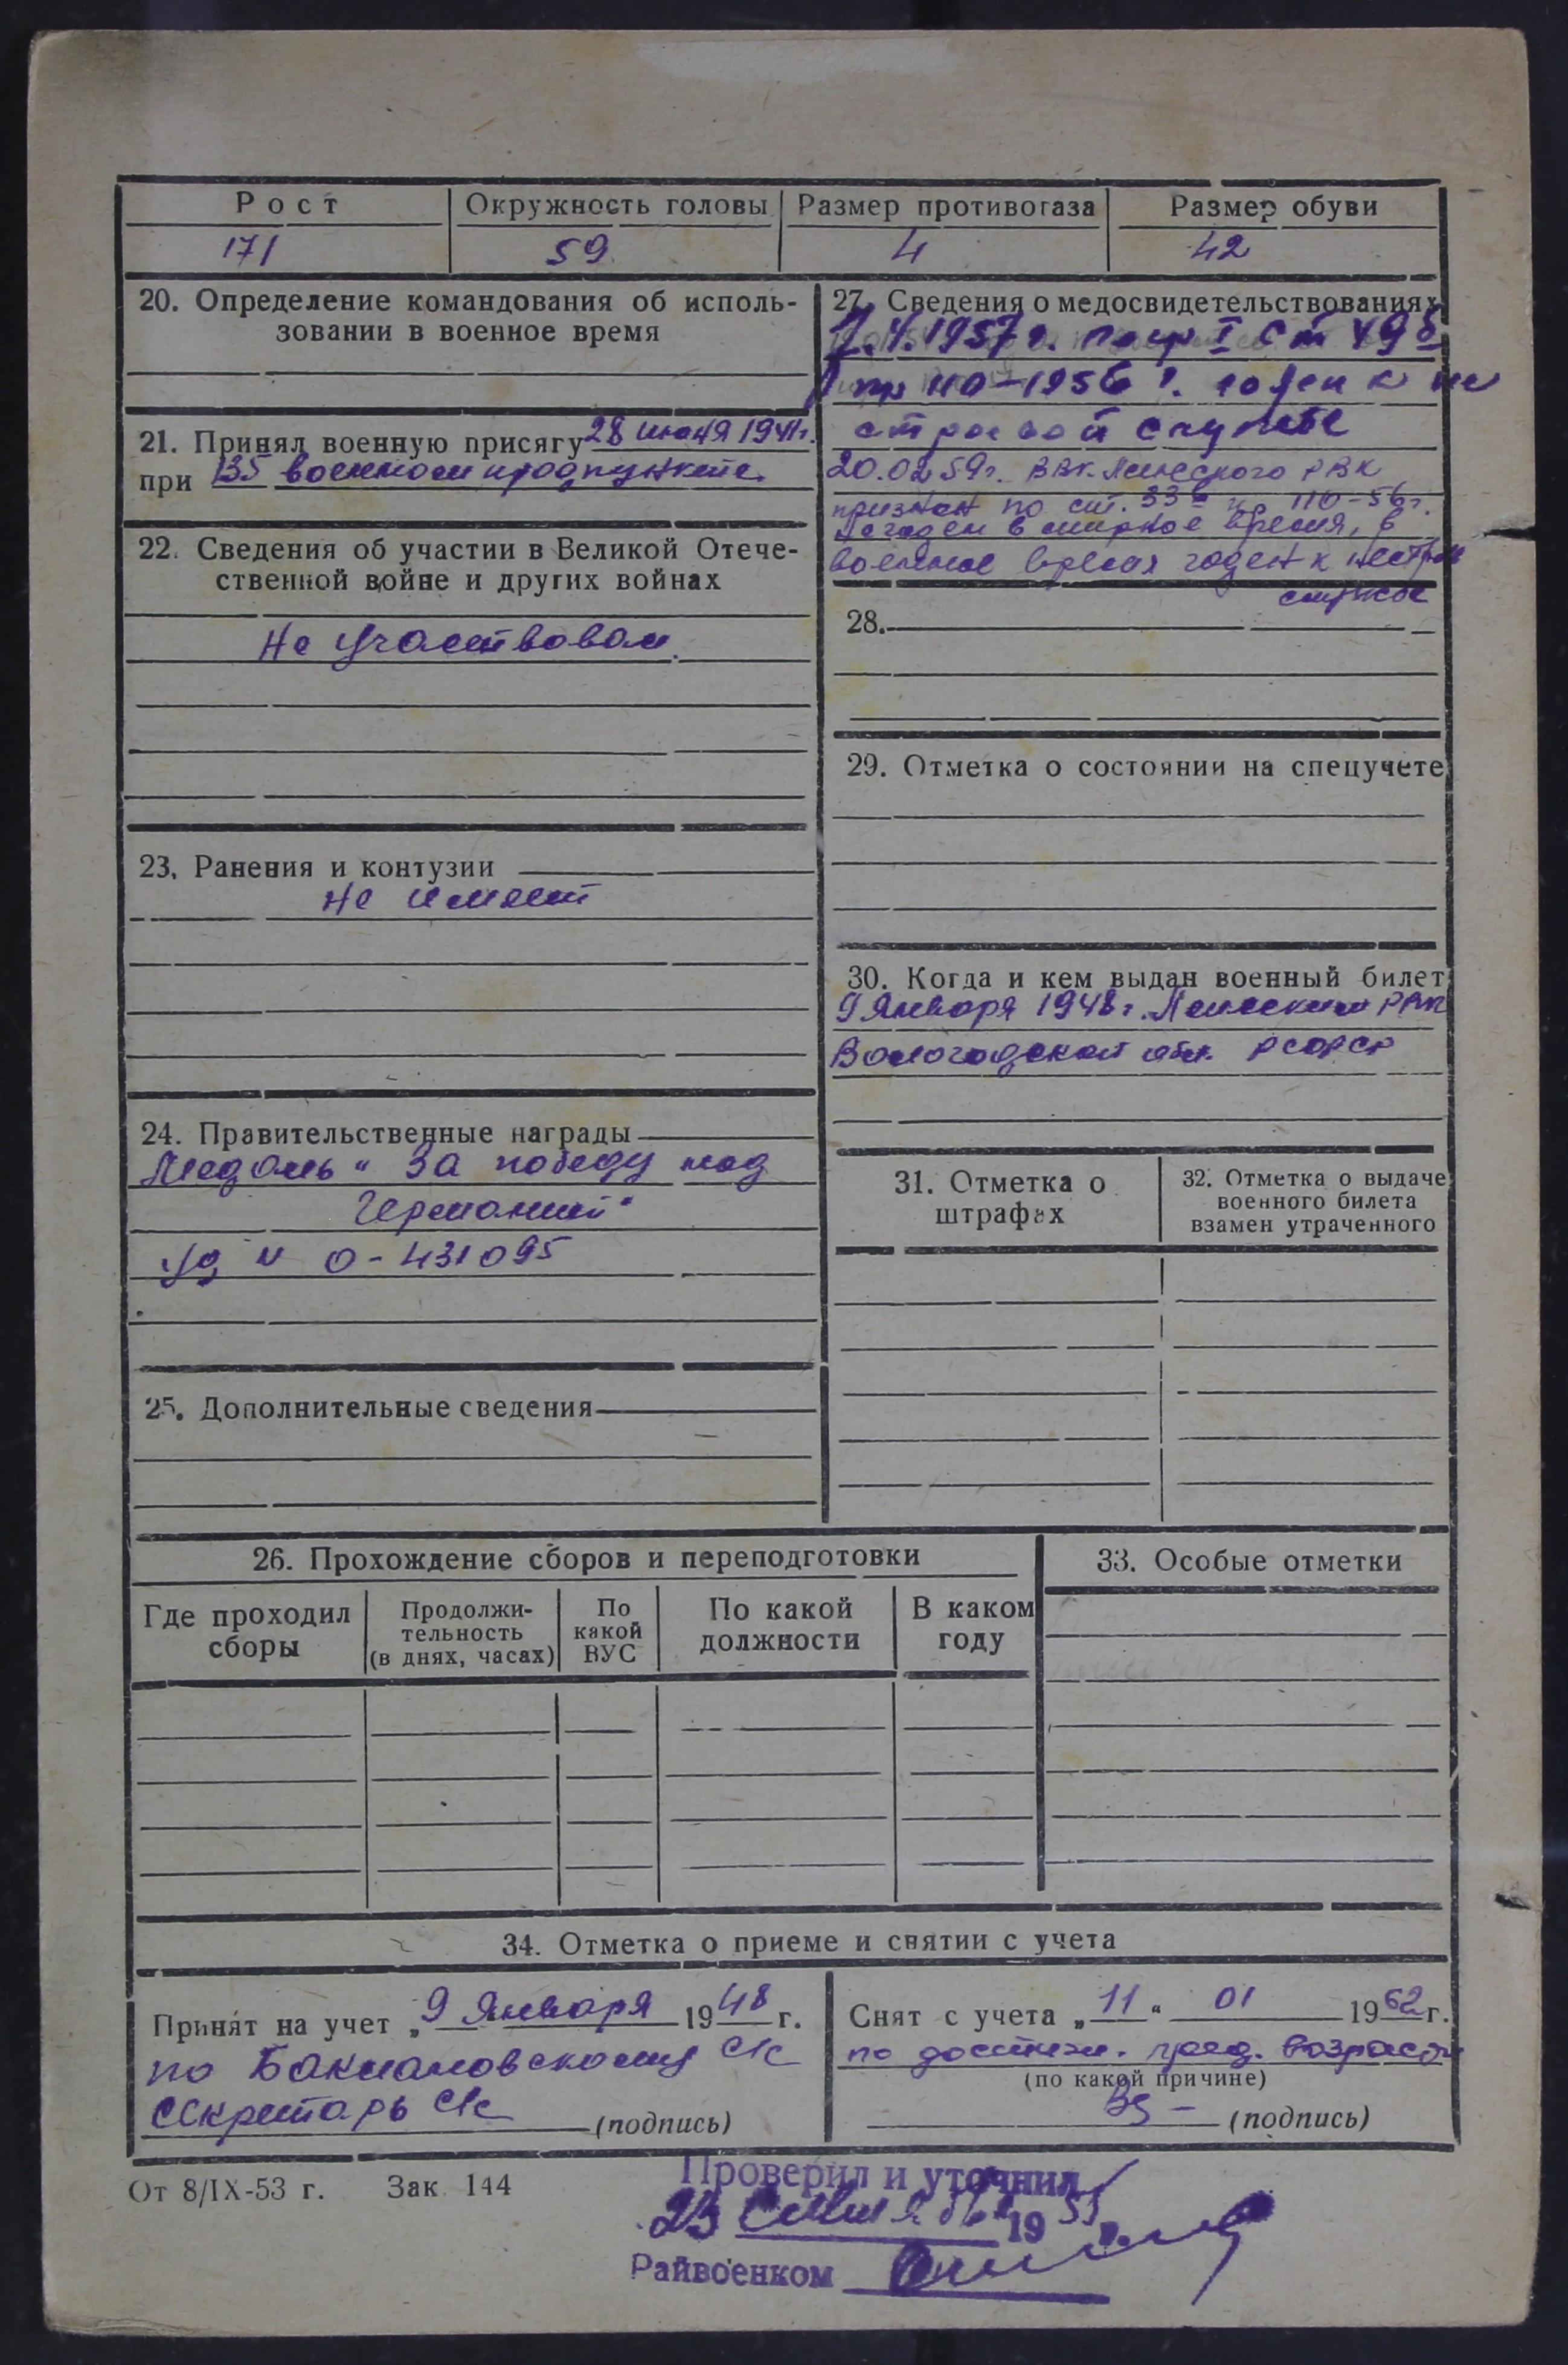 Рост
Окружность головы
Размер противогаза
Размер обуви
171
59
4
42
20. Определение командования об исполь-
зовании в военное время
21. Принял военную присягу 28 июня 1941г.
при 135 военном продпункте.
22. Сведения об участии в Великой Отече-
ственной войне и других войнах
Не участвовал.
23. Ранения и контузии
не имеет
24. Правительственные награды
Медаль „За победу над
Германией"
уд № 0-431095
25. Дополнительные сведения
27. Сведения о медосвидетельствованиях
1957 г. I ст 49 б
пр 110-1956 г. годен к не
строевой службе
20.02.59г. РВК
признан по ст. 33б пр 110-56г.
не годен в мирное время, в
военное время годен к нестроев
службе
28.
29. Отметка о состоянии на спецучете
30. Когда и кем выдан военный билет
9 Января 1948г. РВК
Вологодской обл. РСФСР
31. Отметка о
штрафах
32. Отметка о выдаче
военного билета
взамен утраченного
26. Прохождение сборов и переподготовки
Где проходил
сборы
Продолжи-
тельность
(в днях, часах)
По
какой
ВУС
По какой
должности
В каком
году
33. Особые отметки
34. Отметка о приеме и снятии с учета
Принят на учет „9 Января 1948 г.
по с/с
Секретарь с/с (подпись)
Снят с учета „11" 01 1962г.
по достиж. пред. возраста
(по какой причине)
(подпись)
От 8/IX-53 г. Зак. 144
Проверил и уточнил
23 19 г.
Райвоенком